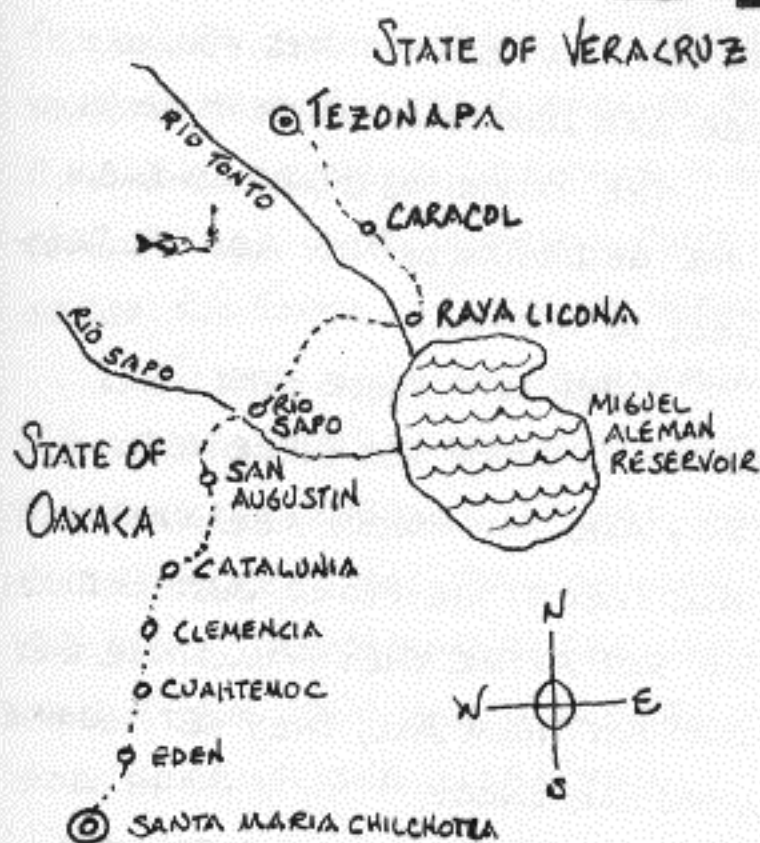 STATE OF VERACRUZ
TEZONAPA
RIO TONTO
CARACOL
RAYA LICONA
RÍO SAPO
RÍO
SAPO
MIGUEL
ALEMAN
RESERVOIR
STATE OF
OAXACA
SAN
AUGUSTIN
CATALUNIA
CLEMENCIA
CUAHTEMOC
EDEN
SANTA MARIA CHILCHOTLA
N
W
E
S